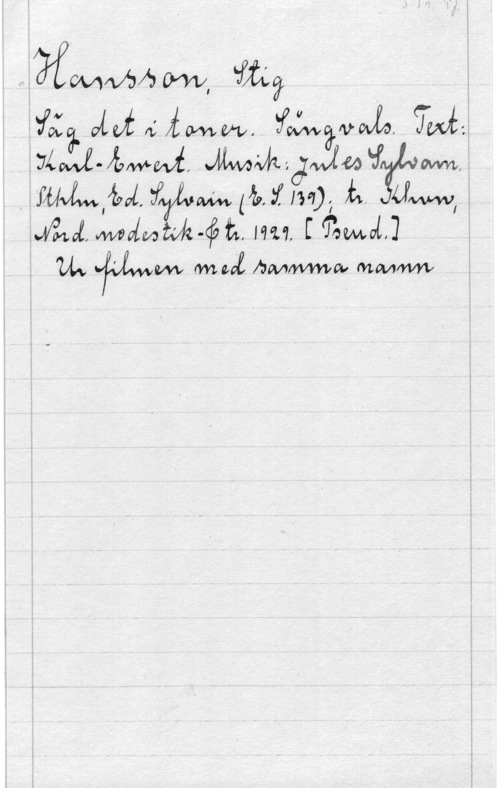 Hansson, Stig
Säg det i toner. Sångvals. Text:
Karl-Ewert. Musik: Jules Sylvain.
Sthlm, Ed. Sylvain (E. S. 139); tr. Khvn,
Nord. nodestik-& tr. 1929. [Pseud.]
Ur filmen med samma namn